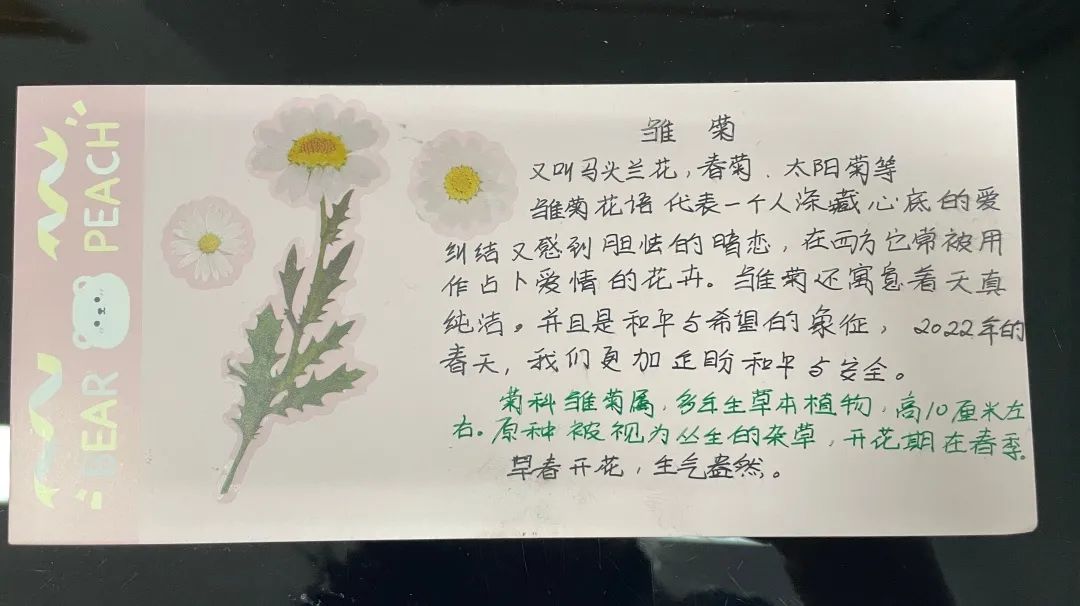 BEAR PEACH
雏菊
又叫马头兰花，春菊、太阳菊等
雏菊花语代表一个人深藏心底的爱
纠结又感到胆怯的暗恋，在西方它常被用
作占卜爱情的花卉。雏菊还寓意着天真
纯洁。并且是和平与希望的象征，2022年的
春天，我们更加企盼和平与安全。
菊科雏菊属，多年生草本植物，高10厘米左
右。原种被视为丛生的杂草，开花期在春季。
早春开花，生气盎然。